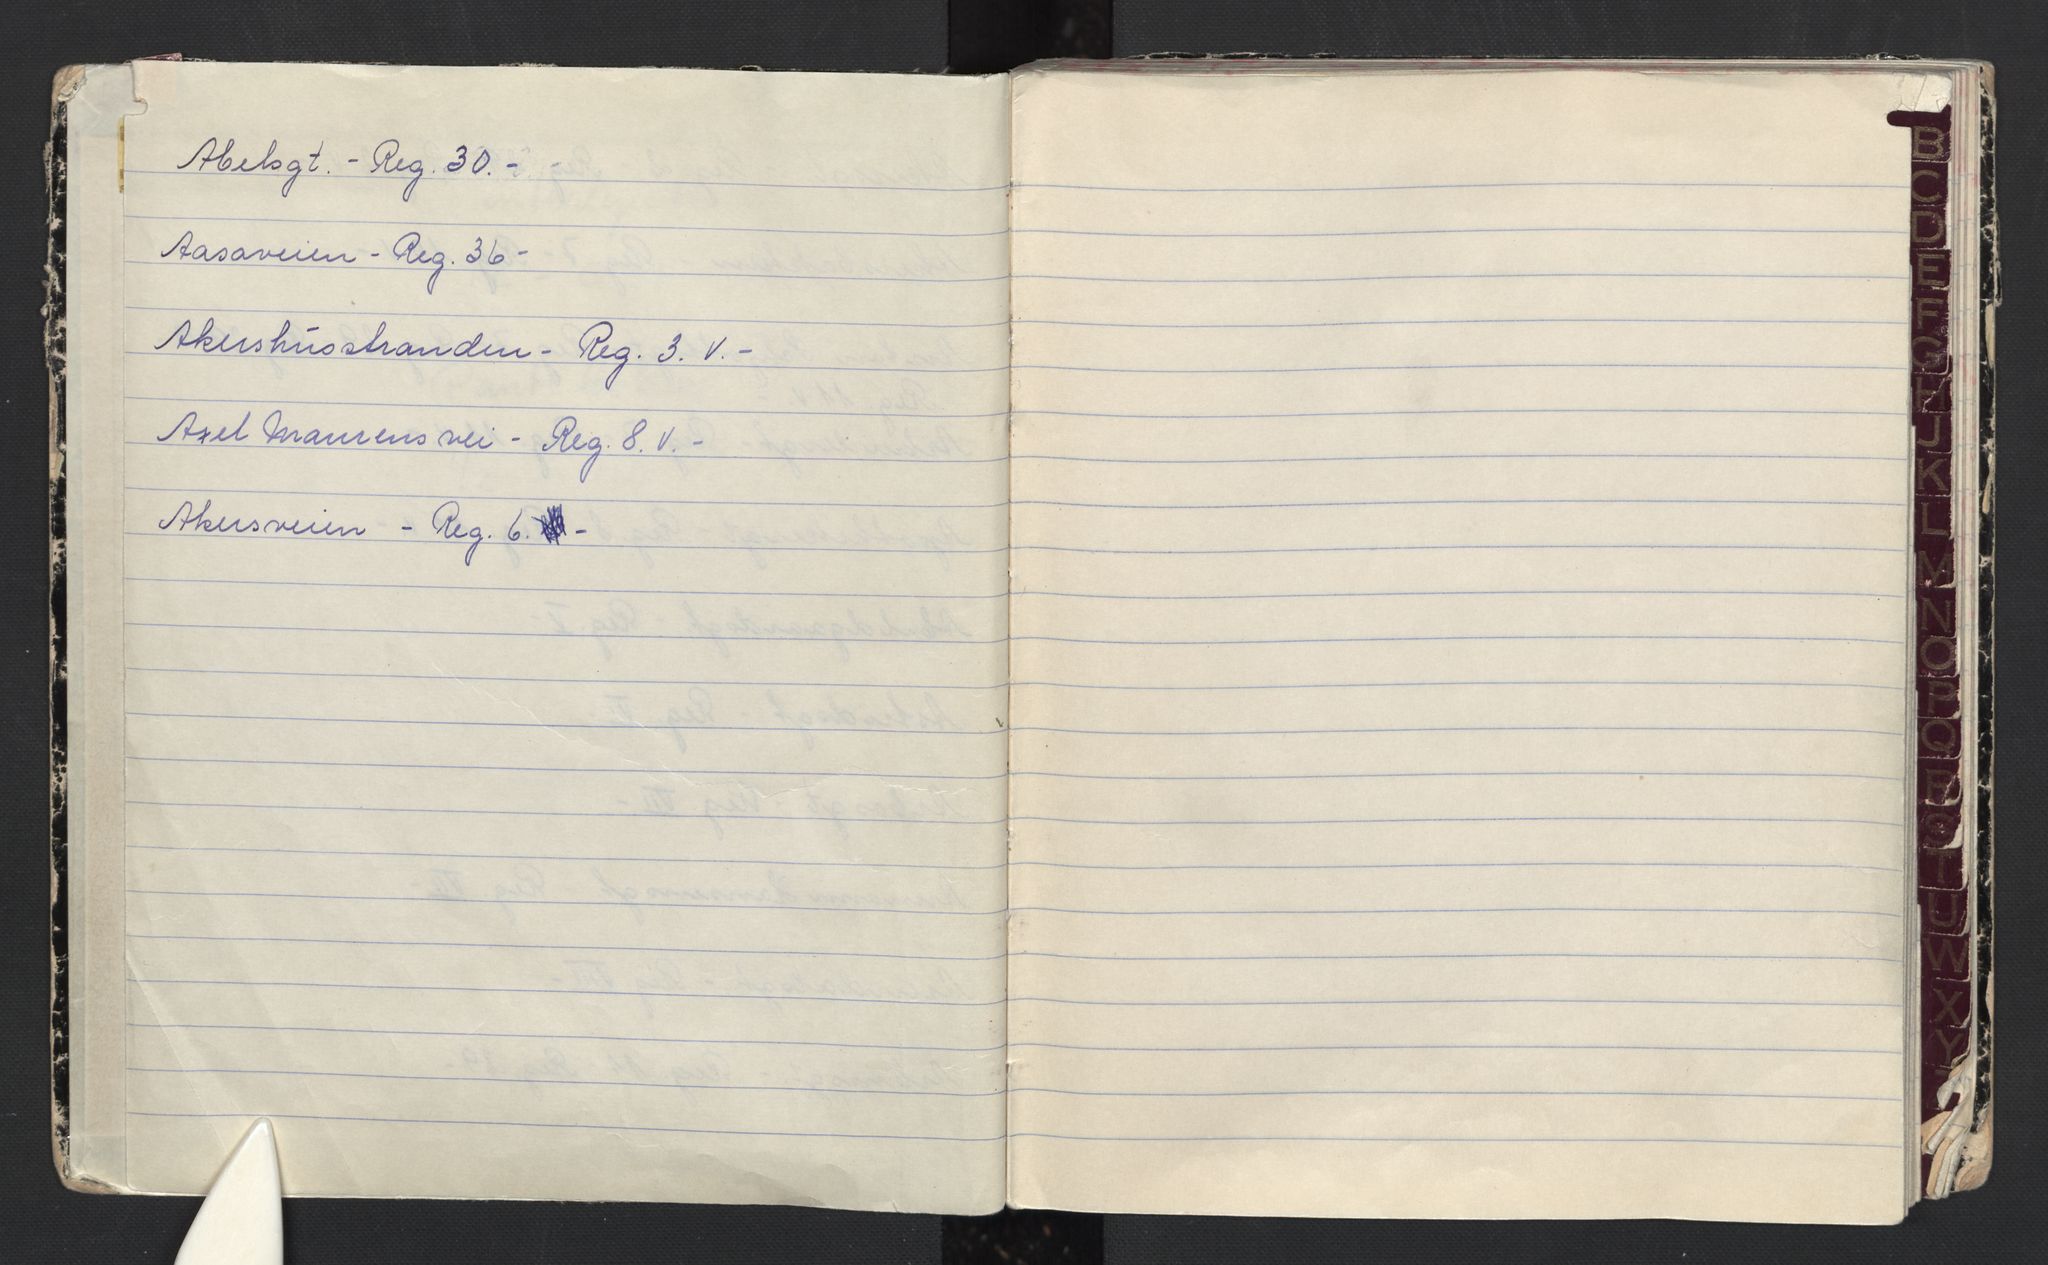 Abelsgt. - Reg. 30. - -
Aasaveien - Reg. 36 -
Akershusstranden - Reg. 3. V. -
Axel Maurers vei - Reg. 8. V. -
Akersveien - Reg. 6. -
B
C
D
E
F
G
H
J
K
L
M
N
O
P
Q
R
S
T
U
W
X
Y